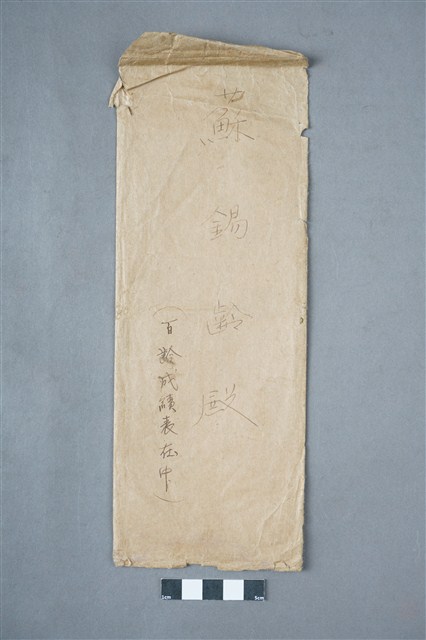 蘇錫齡殿
(百齡成績表在中)
1cm 5cm